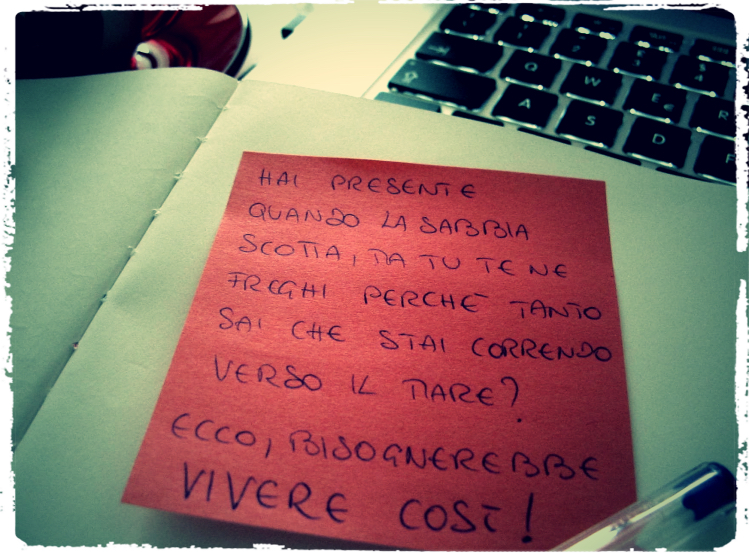 HAI PRESENTE
QUANDO LA SABBIA
SCOTTA, MA TU TE NE
FREGHI PERCHÈ TANTO
SAI CHE STAI CORRENDO
VERSO IL MARE?
ECCO, BISOGNEREBBE
VIVERE COSÌ!
Q W E € R
A S D F